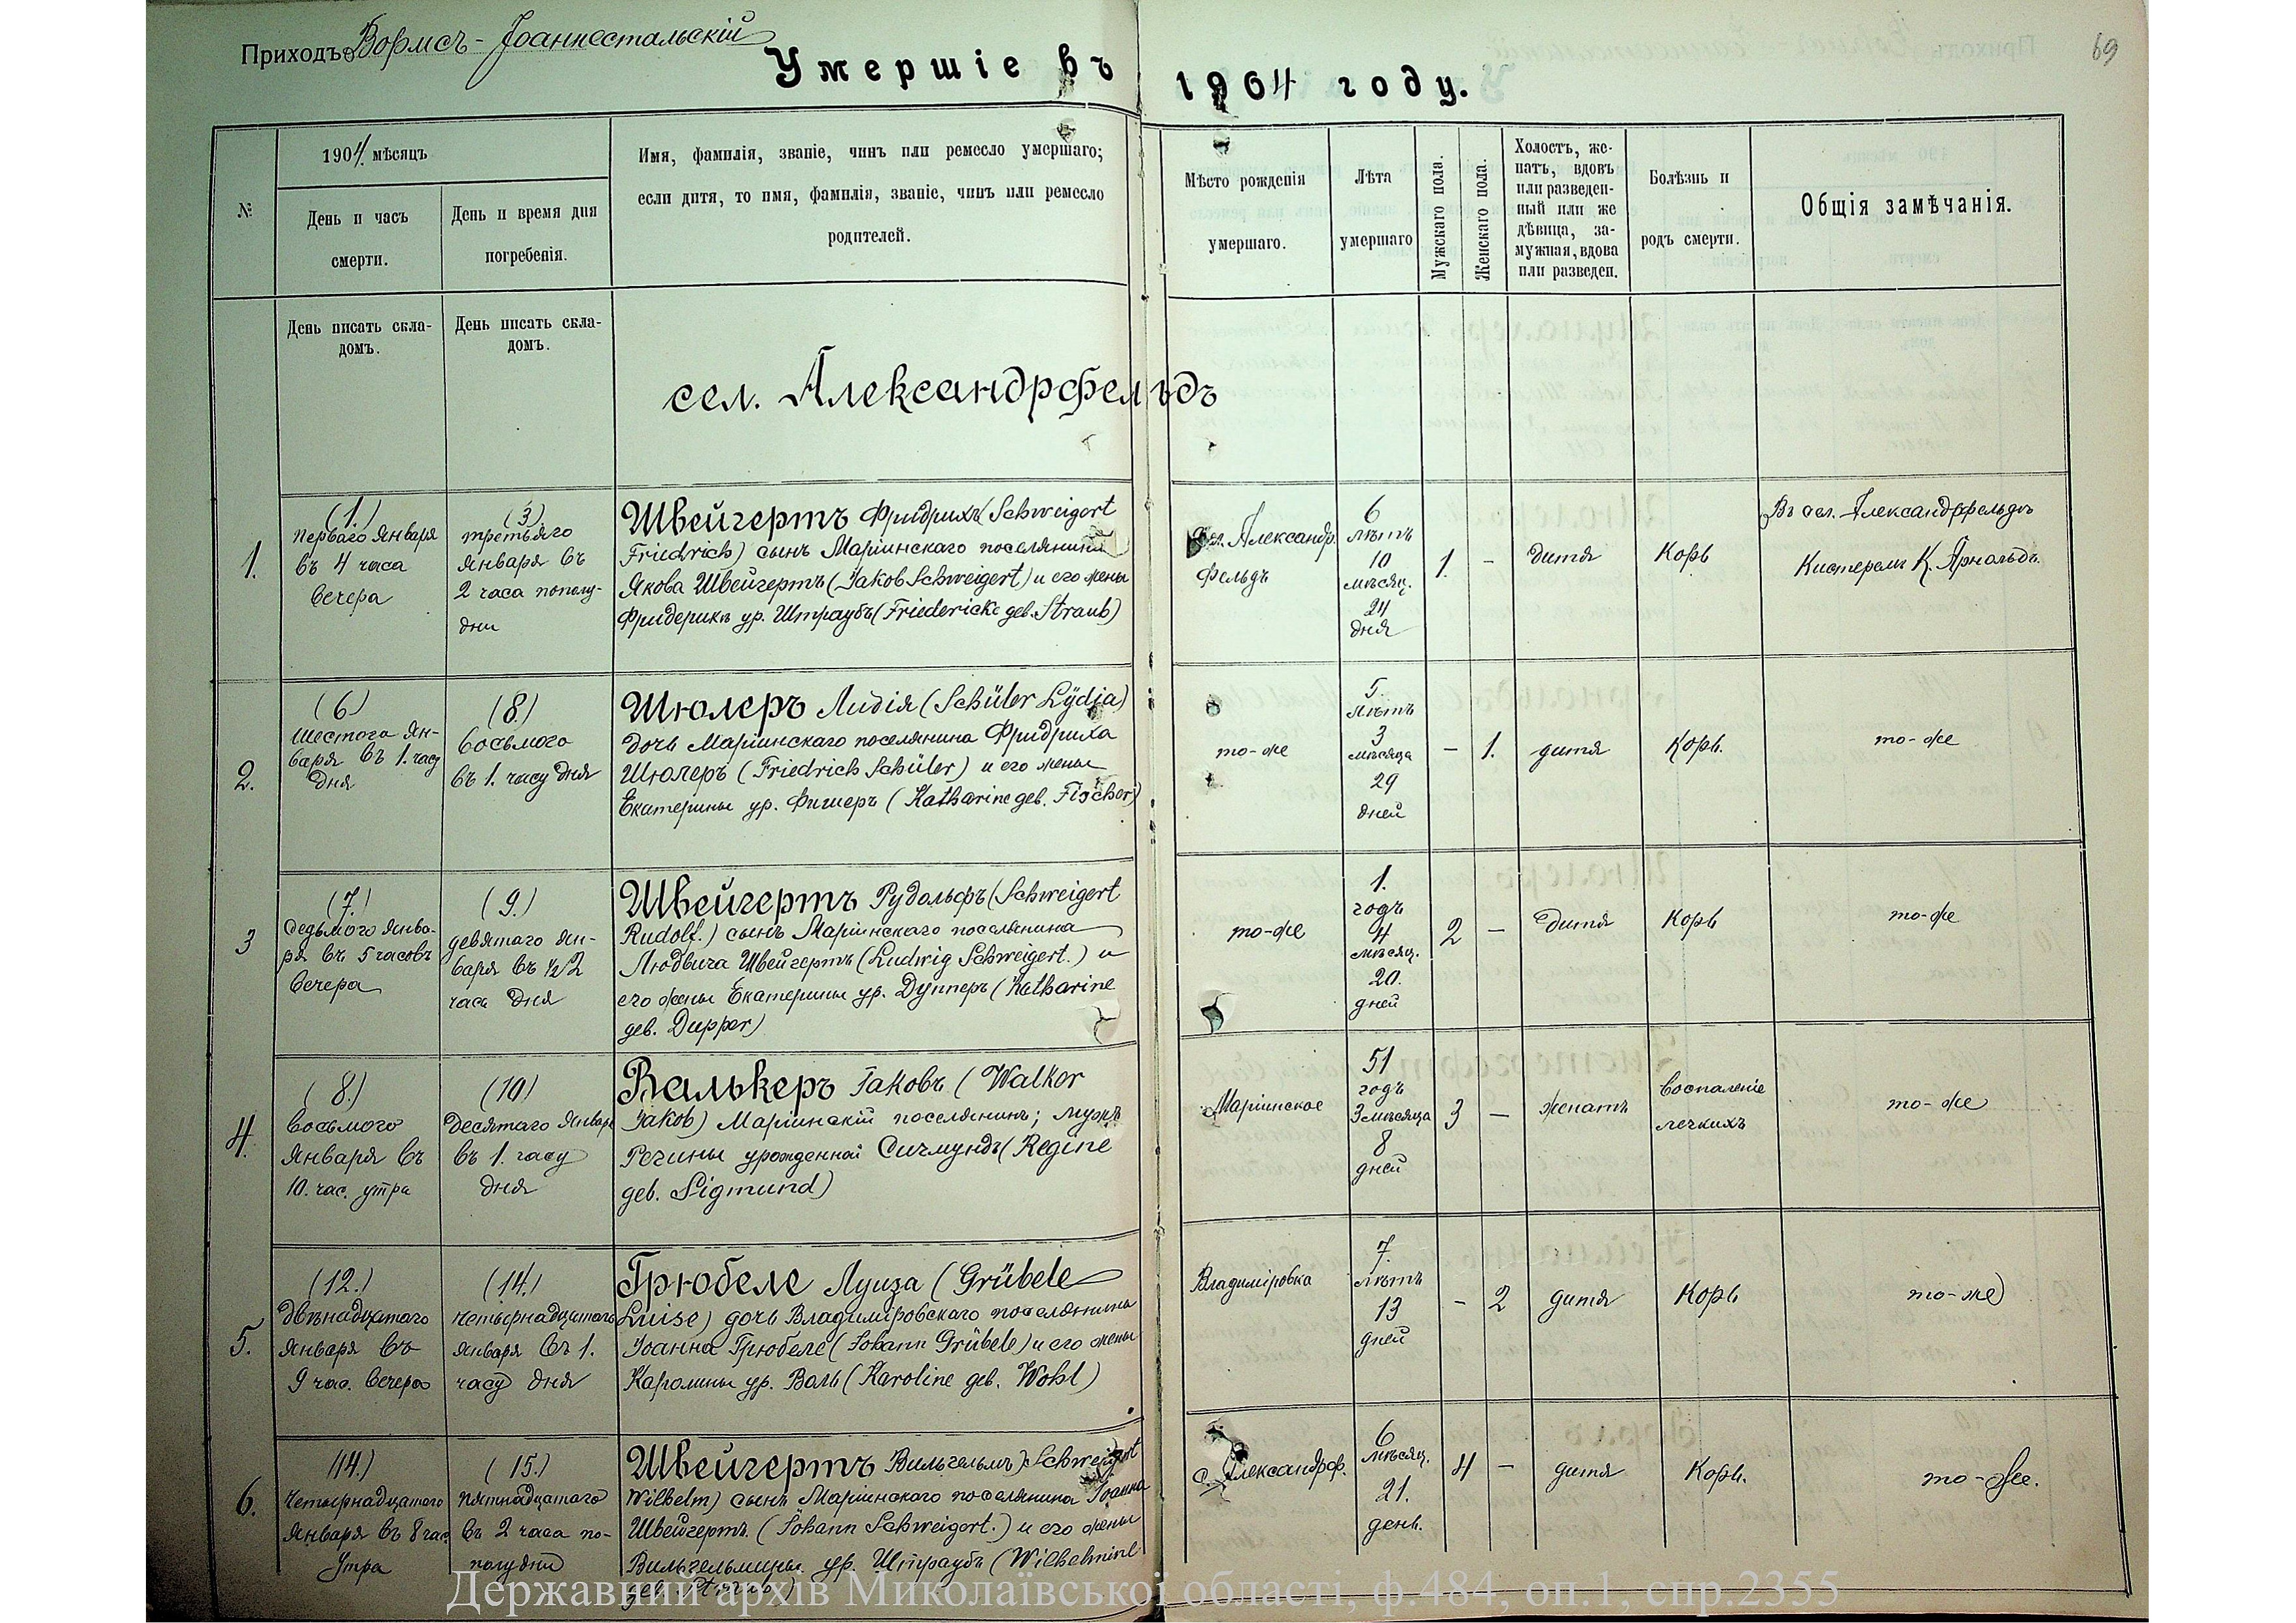 Приходъ Вормсъ-Іоаннестальскій
69
Умершіе въ 1904 году.
№
1904. мѣсяцъ
День и часъ
смерти.
День и время дня
погребенія.
Имя, фамилія, званіе, чинъ или ремесло умершаго;
если дитя, то имя, фамилія, званіе, чинъ или ремесло
родителей.
Мѣсто рожденія
умершаго.
Лѣта
умершаго
Мужскаго пола.
Женскаго пола.
Холостъ, же-
натъ, вдовъ
или разведен-
ный или же
дѣвица, за-
мужная, вдова
или разведен.
Болѣзнь и
родъ смерти.
Общія замѣчанія.
День писать скла-
домъ.
День писать скла-
домъ.
сел. Александрфельдъ
1.
(1.)
перваго Января
въ 4 часа
вечера
(3)
третьяго
Января въ
2 часа пополу-
дни
Швейгертъ Фридрихъ (Schweigert
Friedrich) сынъ Маріинскаго поселянина
Якова Швейгертъ (Jakob Schweigert) и его жены
Фридерики ур. Штраубъ (Friedericke geb. Straub)
Александр.
фельдъ
6
лѣтъ
10
мѣсяц.
24
дня
1.
-
дитя
Корь
Въ сел. Александрфельдъ
Кистеромъ К. Арнольдъ.
2.
(6)
шестога Ян-
варя въ 1. часу
дня
(8.)
восьмого
въ 1. часу дня
Шюлеръ Лидія (Schüler Lÿdja)
дочь Маріинскаго поселянина Фридриха
Шюлеръ (Friedrich Schüler) и его жены
Екатерины ур. Фишеръ (Katharine geb. Fischer)
то-же
5.
лѣтъ
3
мѣсяца
29
дней
-
1.
дитя
Корь.
то-же
3
(7.)
Седьмого Янва-
ря въ 5 часовъ
вечера
(9.)
девятаго Ян-
варя въ ½ 2
часа дня
Швейгертъ Рудольфъ (Schweigert
Rudolf.) сынъ Маріинскаго поселянина
Людвига Швейгертъ (Ludwig Schweigert.) и
его жены Екатерины ур. Дупперъ (Katharine
geb. Dupper)
то-же
1.
годъ
4
мѣсяц.
20.
дней
2
-
дитя
Корь
то-же
4.
(8.)
восьмого
Января въ
10. час. утра
(10)
десятаго Января
въ 1. часу
дня
Валькеръ Іаковъ (Walker
Jakob) Маріинскій поселянинъ; мужъ
Регины урожденной Сигмундъ (Regine
geb. Sigmund)
Маріинское
51
годъ
3 мѣсяца
8
дней
3
-
женатъ
воспаленіе
легкихъ
то-же
5.
(12.)
двѣнадцатаго
Января въ
9 час. вечера
(14.)
четырнадцатаго
Января въ 1.
часу дня
Грюбеле Луиза (Grübele
Luise) дочь Владиміровскаго поселянина
Іоанна Грюбеле (Johann Grübele) и его жены
Каролины ур. Воль (Karoline geb. Wohl)
Владиміровка
7.
лѣтъ
13
дней
-
2
дитя
Корь
то-же
6.
(14.)
четырнадцатаго
Января въ 8 час.
утра
(15.)
пятнадцатаго
въ 2 часа по-
полудни
Швейгертъ Вильгельмъ (Schweigert
Wilhelm) сынъ Маріинскаго поселянина Іоанна
Швейгертъ. (Johann Schweigert.) и его жены
Вильгельмины ур. Штраубъ (Wilhelmine
geb. Straub)
с. Александрф.
6
мѣсяц.
21.
день.
4
-
дитя
Корь.
то-же.
Державний архів Миколаївської області, ф.484, оп.1, спр.2355